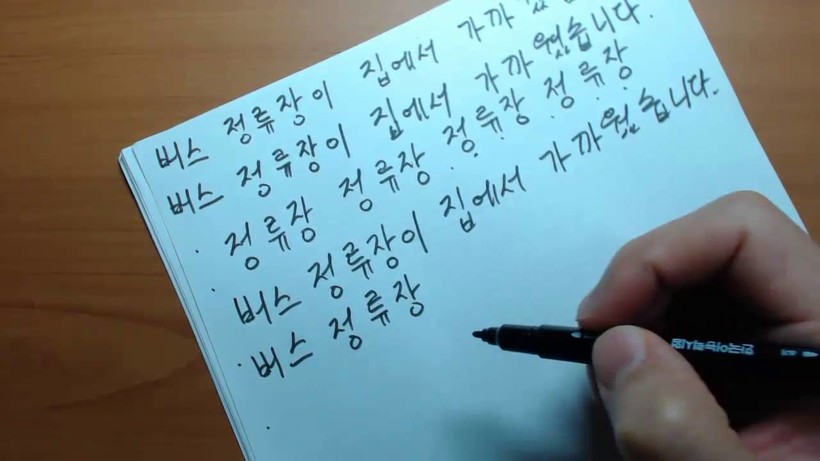 버스 정류장이 집에서 가까
버스 정류장이 집에서 가까웠습니다.
정류장 정류장 정류장 정류장
버스 정류장이 집에서 가까웠습니다.
버스 정류장